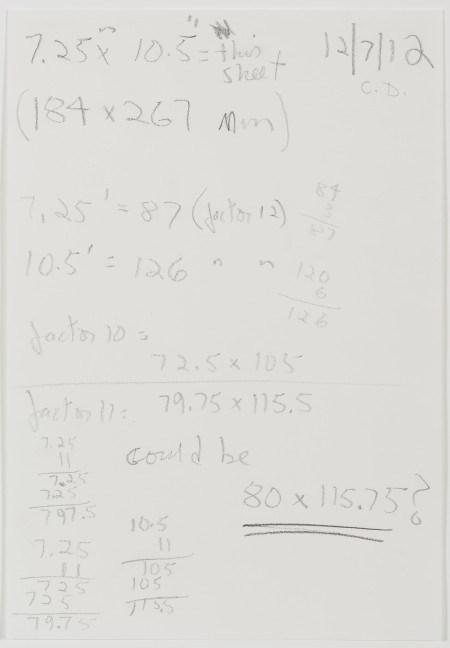 7.25" x 10.5" = this sheet
12/7/12
C.D.
(184 x 267 mm)
7.25' = 87 (factor 12)
84
3
87
10.5' = 126 " "
120
6
126
factor 10 =
72.5 x 105
factor 11 = 79.75 x 115.5
7.25
11
7.25
725
797.5
could be
80 x 115.75?
7.25
11
725
725
79.75
10.5
11
105
105
115.5